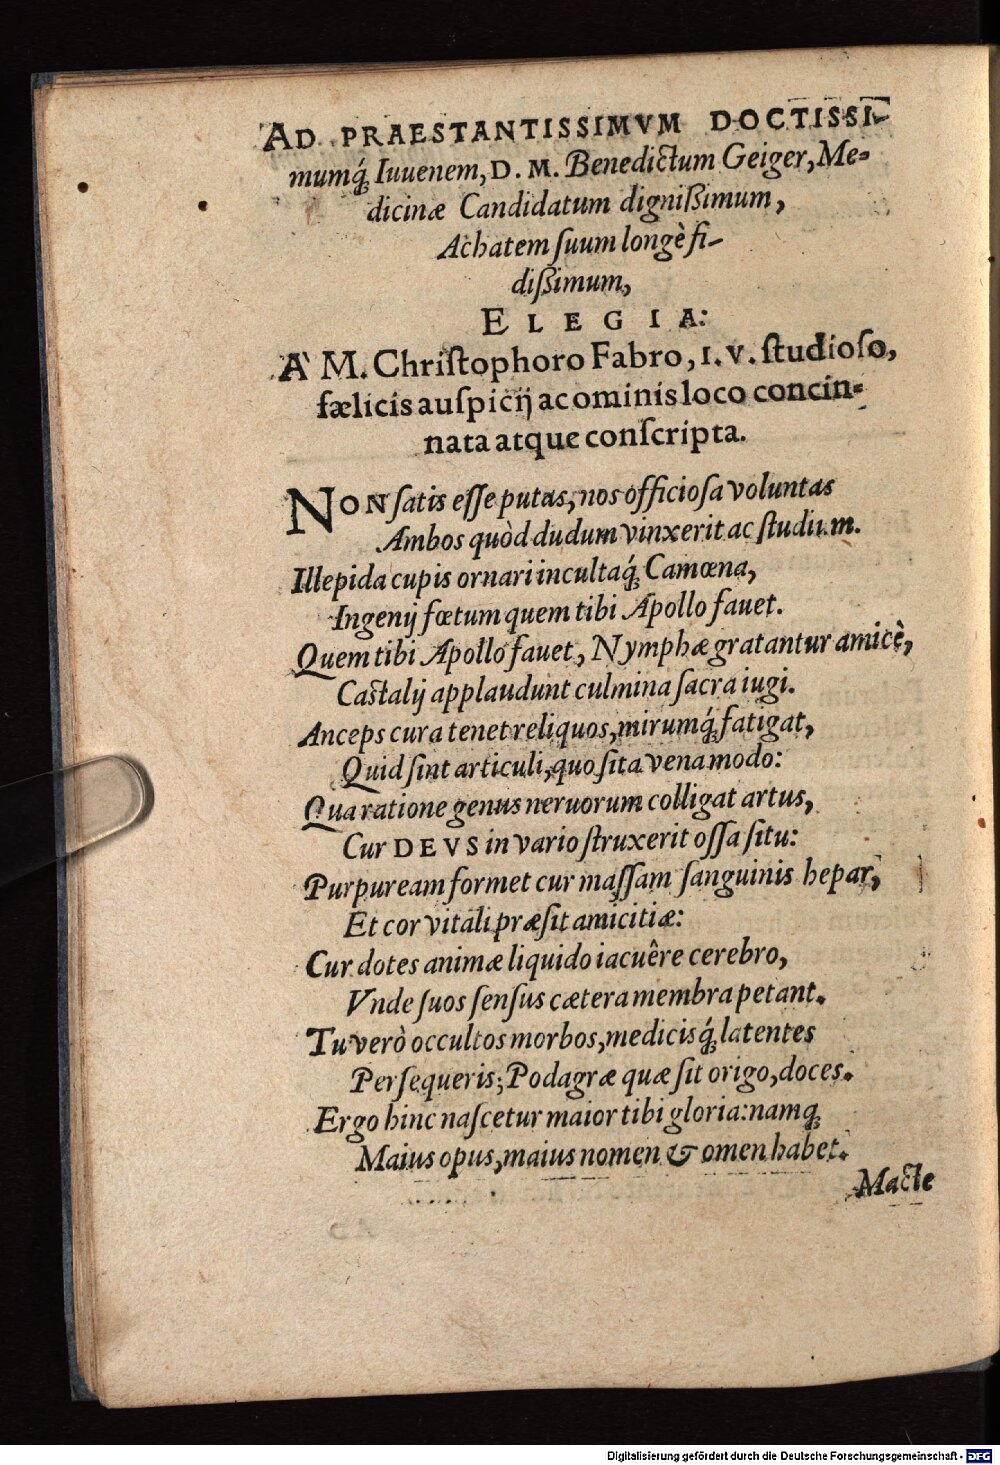 AD PRAESTANTISSIMVM DOCTISSI-
mumq́; Iuuenem, D. M. Benedictum Geiger, Me-
dicinæ Candidatum dignißimum,
Achatem ſuum longè fi-
dißimum,
ELEGIA:
A' M. Chriſtophoro Fabro, I. V. ſtudioſo,
fælicis auſpicij ac ominis loco concin-
nata atque conſcripta.
NON ſatis eſſe putas, nos officioſa voluntas
Ambos quòd dudum vinxerit ac ſtudium.
Illepida cupis ornari incultaq́; Camœna,
Ingenij fœtum quem tibi Apollo fauet.
Quem tibi Apollo fauet, Nymphæ gratantur amicè,
Caſtalij applaudunt culmina ſacra iugi.
Anceps cura tenet reliquos, mirumq́; fatigat,
Quid ſint articuli, quo ſita vena modo:
Qua ratione genus neruorum colligat artus,
Cur DEVS in vario ſtruxerit oſſa ſitu:
Purpuream formet cur maſſam ſanguinis hepar,
Et cor vitali præſit amicitiæ:
Cur dotes animæ liquido iacuêre cerebro,
Vnde ſuos ſenſus cætera membra petant.
Tu verò occultos morbos, medicisq́; latentes
Perſequeris; Podagræ quæ ſit origo, doces.
Ergo hinc naſcetur maior tibi gloria: namq́;
Maius opus, maius nomen & omen habet.
Macte
Digitalisierung gefördert durch die Deutsche Forschungsgemeinschaft - DFG